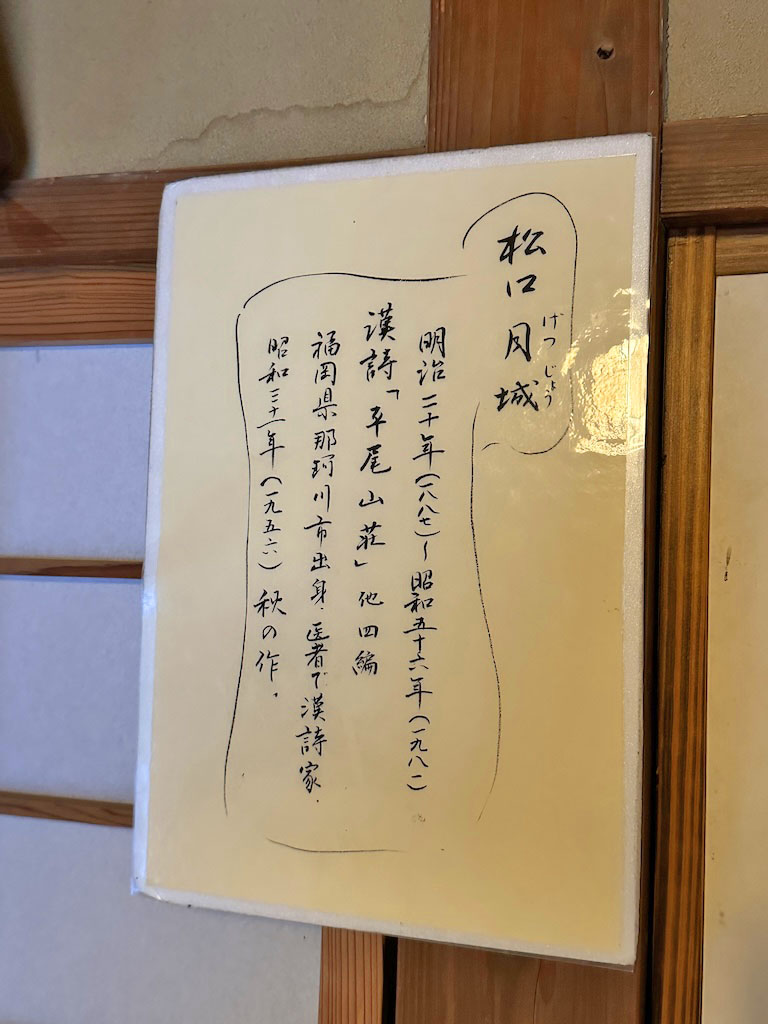 松口月城
げつじょう
明治二十年(一八八七)~昭和五十六年(一九八一)
漢詩「平尾山荘」他四編
福岡県那珂川市出身.医者で漢詩家.
昭和三十一年(一九五六)秋の作.